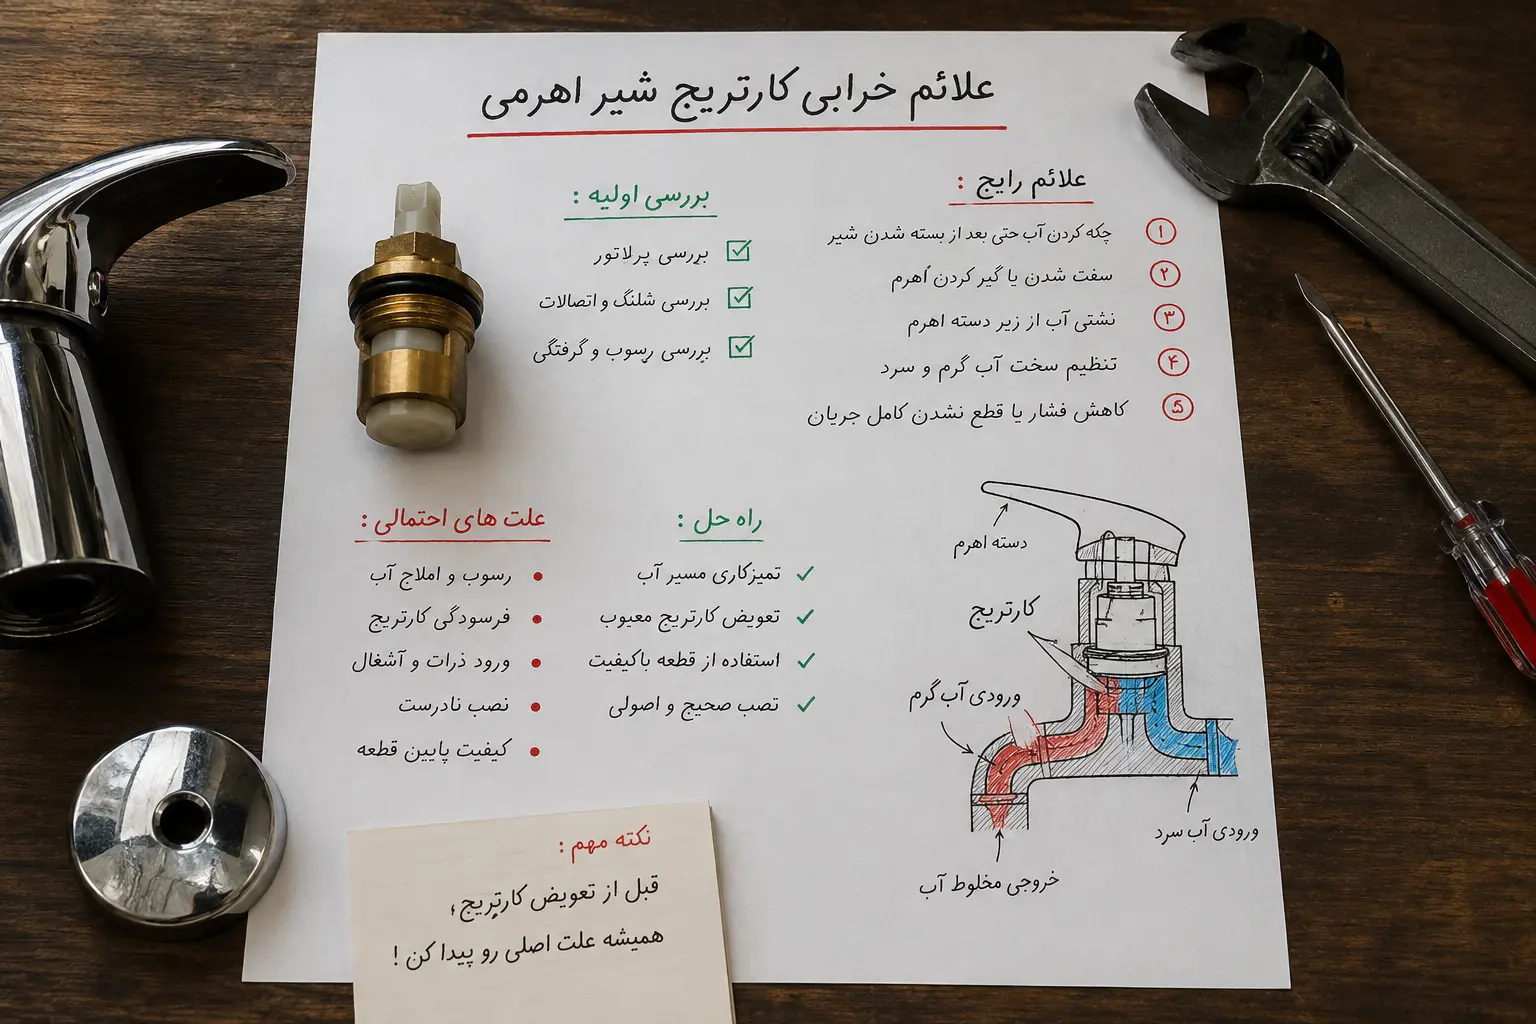 علائم خرابی کارتریج شیر اهرمی
علائم رایج :
۱ چکه کردن آب حتی بعد از بسته شدن شیر
۲ سفت شدن یا گیر کردن اهرم
۳ نشتی آب از زیر دسته اهرم
۴ تنظیم سخت آب گرم و سرد
۵ کاهش فشار یا قطع نشدن کامل جریان
بررسی اولیه :
بررسی پرلاتور
بررسی شلنگ و اتصالات
بررسی رسوب و گرفتگی
راه حل :
تمیزکاری مسیر آب
تعویض کارتریج معیوب
استفاده از قطعه باکیفیت
تصب صحیج و اصولی
علت های احتمالی :
رسوب و املاح آب
فرسودگی کارتریج
ورود ذرات و آشغال
نصب نادرست
کیفیت پایین قطعه
دسته اهرم
کارتریج
ورودی آب گرم
ورودی آب سرد
خروجی مخلوط آب
نکته مهم :
قبل از تعویض کارتریج،
همیشه علت اصلی رو پیدا کن !